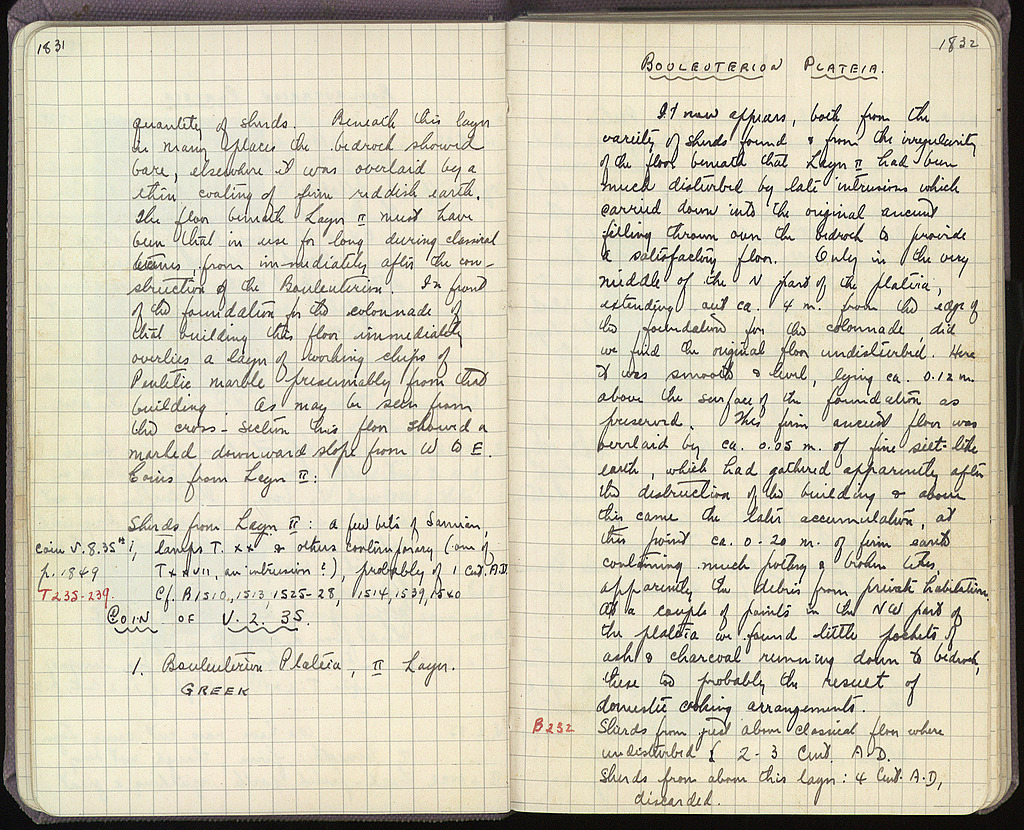 1831
quantity of sherds. Beneath this layer
in many places the bedrock showed
bare, elsewhere it was overlaid by a
thin coating of firm reddish earth.
The floor beneath Layer II must have
been that in use for long during classical
times, from im-mediately after the con-
struction of the Bouleuterion. In front
of the foundation for the colonnade of
that building this floor immediately
overlies a layer of working chips of
Pentelic marble presumably from that
building. As may be seen from
the cross-section this floor showed a
marked downward slope from W to E.
Coins from Layer II:
Sherds from Layer II: a few bits of Samian,
coin V.8.35 #1, lamps T. XX & others contemporary (one of
p. 1849 T XXVII, an intrusion?), probably of 1 Cent. A.D.
T235-239. Cf. B1510, 1513, 1525-28, 1514, 1539, 1540
COIN OF V. 2. 35.
1. Bouleuterion Plateia, II Layer.
GREEK
1832
BOULEUTERION PLATEIA.
It now appears, both from the
variety of sherds found & from the irregularity
of the floor beneath that Layer II had been
much disturbed by late intrusions which
carried down into the original ancient
filling thrown over the bedrock to provide
a satisfactory floor. Only in the very
middle of the N part of the plateia,
extending out ca. 4 m. from the edge of
the foundation for the colonnade did
we find the original floor undisturbed. Here
it was smooth & level, lying ca. 0.12 m.
above the surface of the foundation as
preserved. This firm ancient floor was
overlaid by ca. 0.05 m. of fine silt-like
earth, which had gathered apparently after
the destruction of the building & above
this came the later accumulation, at
this point ca. 0.20 m. of firm earth
containing much pottery & broken tiles,
apparently the debris from private habitation.
At a couple of points in the NW part of
the plateia we found little pockets of
ash & charcoal running down to bedrock,
these too probably the result of
domestic cooking arrangements.
B232 Sherds from just above classical floor where
undisturbed { 2-3 Cent. A.D.
Sherds from above this layer: 4 Cent. A.D,
discarded.